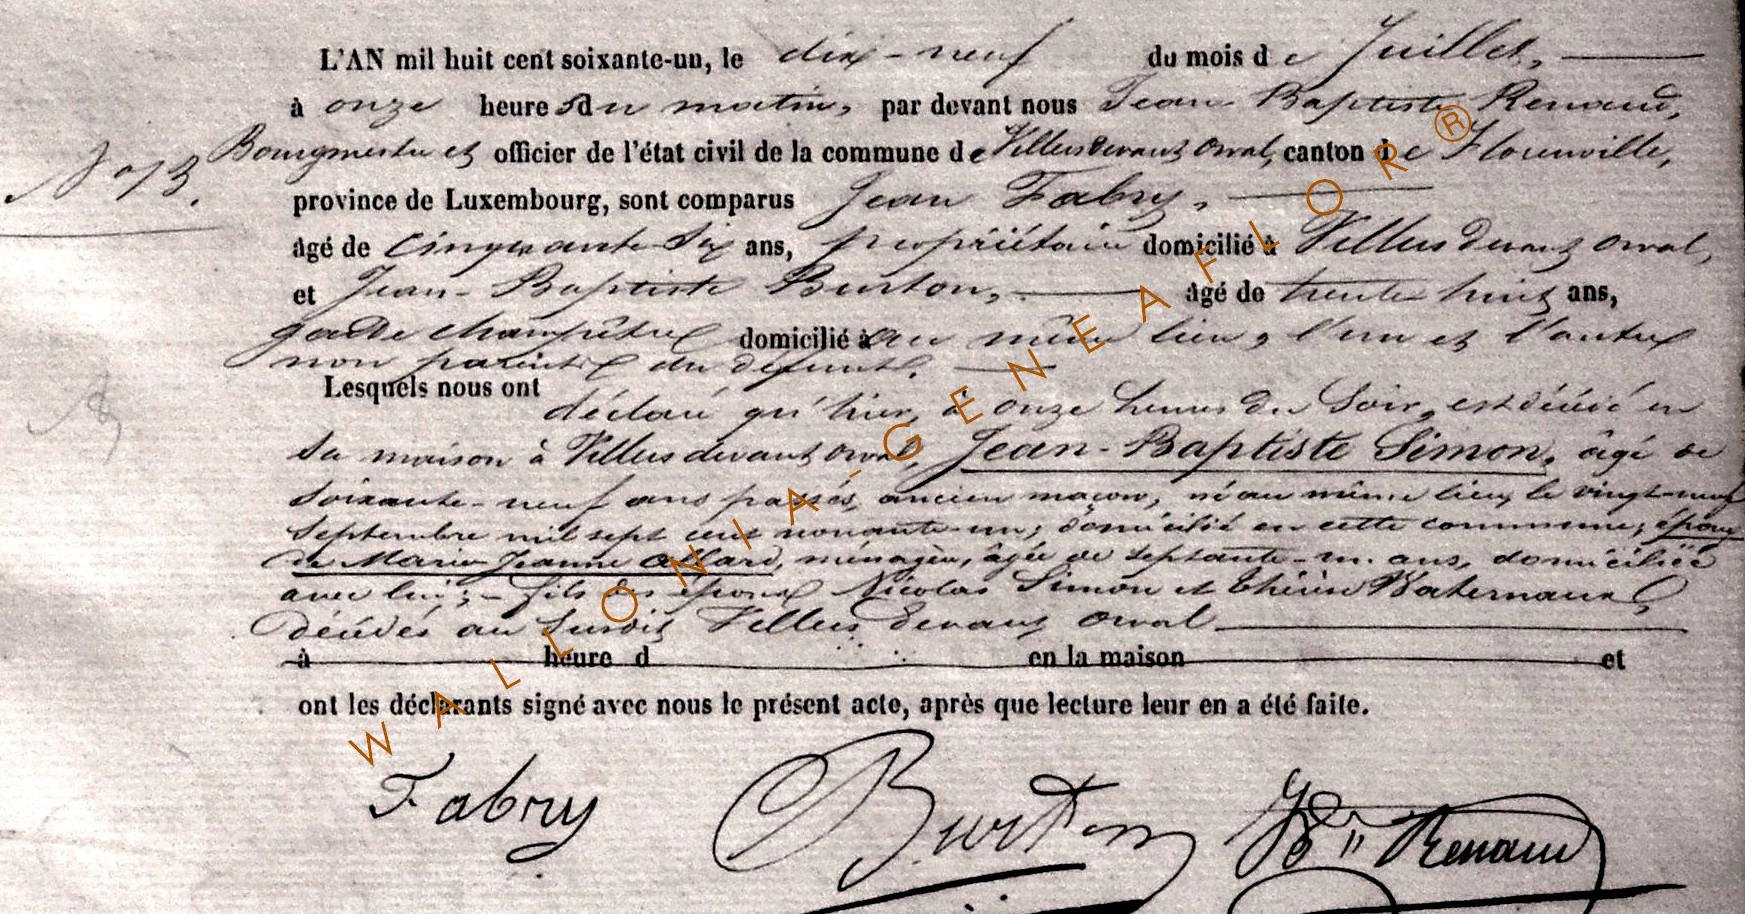 L'AN mil huit cent soixante-un, le dix-neuf du mois de Juillet,
à onze heures du matin, par devant nous Jean-Baptiste Renaud,
N° 13.
Bourgmestre et officier de l'état civil de la commune de Villers devant Orval, canton de Florenville,
province de Luxembourg, sont comparus Jean Fabry,
âgé de cinquante-six ans, propriétaire domicilié à Villers devant Orval,
et Jean-Baptiste Burton, âgé de trente huit ans,
garde champêtre domicilié à au même lieu, l'un et l'autre
non parents du défunt.
Lesquels nous ont
déclaré qu'hier, à onze heures du soir, est décédé en
sa maison à Villers devant Orval, Jean-Baptiste Simon, âgé de
soixante-neuf ans passés, ancien maçon, né au même lieu, le vingt-neuf
Septembre mil sept cent nonante-un; domicilié en cette commune; époux
de Marie Jeanne Allard, ménagère, âgée de septante-un ans, domiciliée
avec lui; - fils des époux Nicolas Simon et Thérèse Waternaux,
décédés au susdit Villers devant Orval
à heure d en la maison et
ont les déclarants signé avec nous le présent acte, après que lecture leur en a été faite.
Fabry Burton JBte Renaud
WALLONIA-GENEAFLOR®